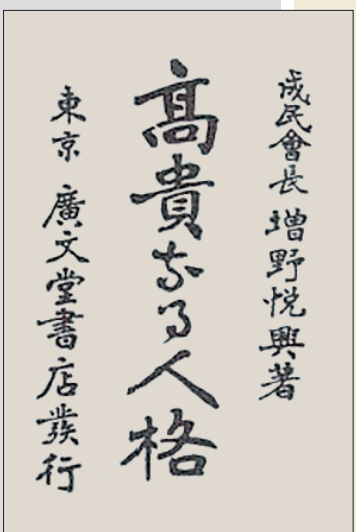 成民會長 増野悦興著
高貴なる人格
東京 廣文堂書店發行